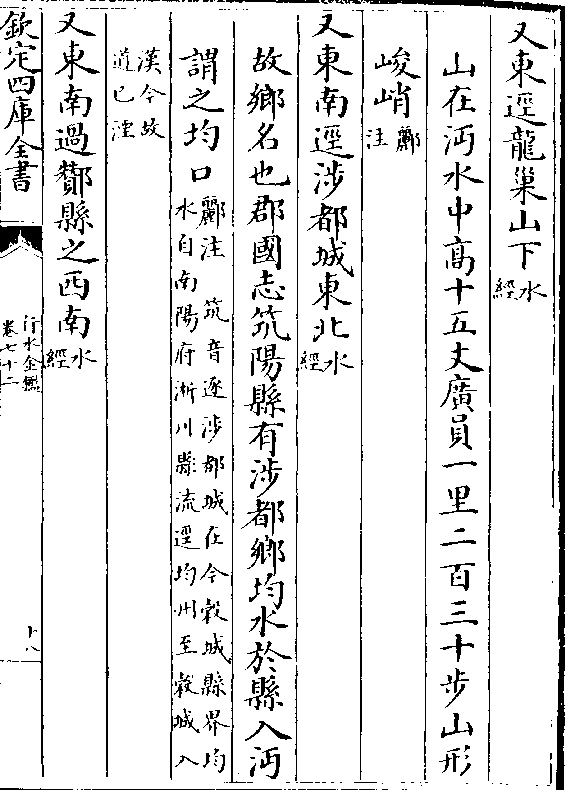 又東逕龍巢山下水經
山在沔水中高十五丈廣員一里二百三十步山形
峻峭酈注
又東南逕涉都城東北水經
故鄉名也郡國志筑陽縣有涉都鄉均水於縣入沔
謂之均口酈注 筑音逐涉都城在今穀城縣界均
水自南陽府淅川縣流逕均州至穀城入
漢今故
道已湮
又東南過酇縣之西南水經
欽定四庫全書
行水金鑑
卷七十二
十八